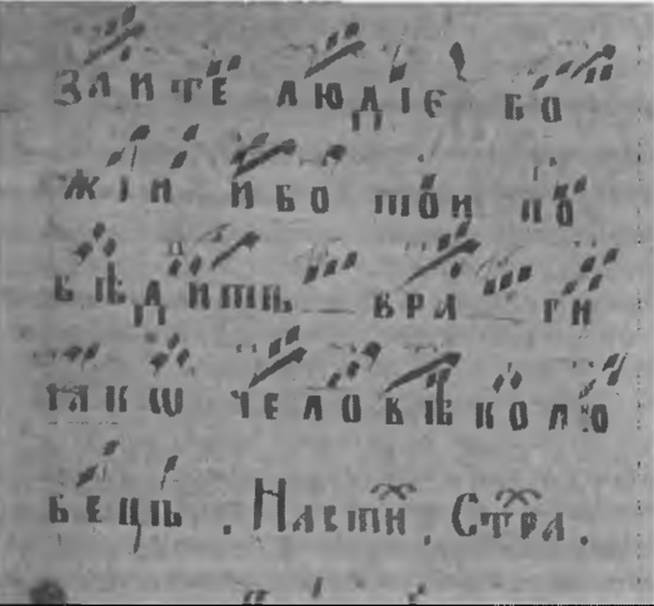 заите людїє бо
жїи ибо той по
бѣдитъ вра ги
ꙗкѡ человѣколю
бецъ . Насти . Стра .